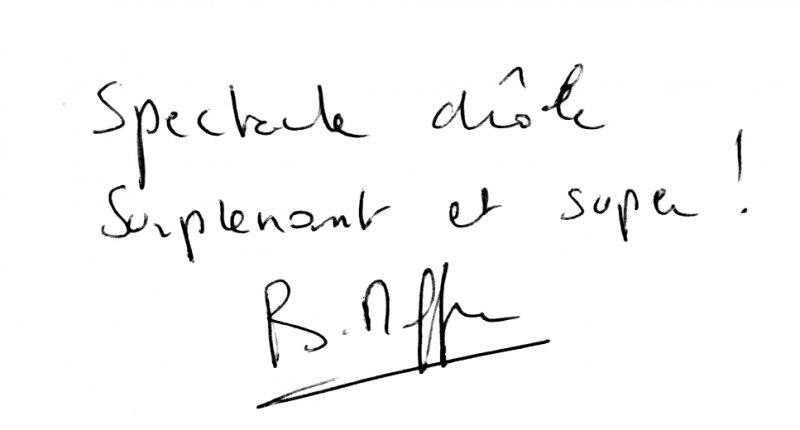 Spectacle drôle
Surprenant et super !
B.